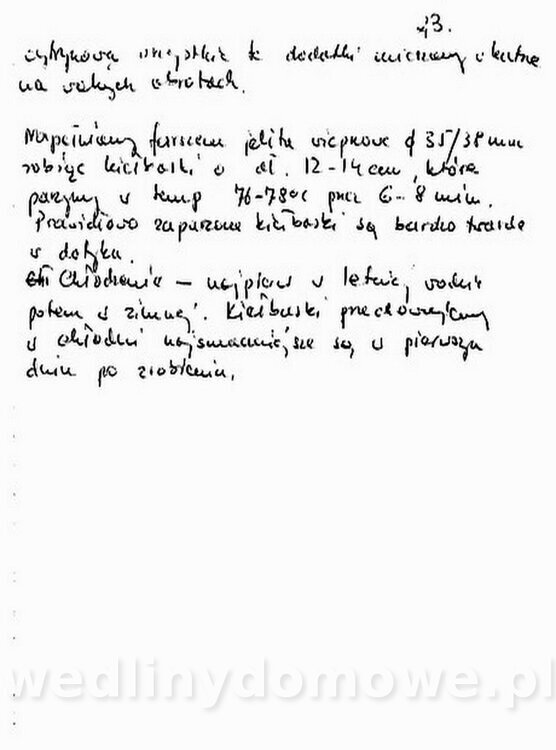 3.
cytrynową wszystkie te dodatki mieszamy w kutrze
na wolnych obrotach.
Napełniamy farszem jelita wieprzowe ϕ 35/38 mm
robiąc kiełbaski o dł. 12-14 cm, które
parzymy w temp 76-78°C przez 6-8 min.
Prawidłowo zaparzone kiełbaski są bardzo twarde
w dotyku.
Chłodzenie – najpierw w letniej wodzie
potem w zimnej. Kiełbaski przechowujemy
w chłodni najsmaczniejsze są w pierwszym
dniu po zrobieniu.
wedlinydomowe.pl